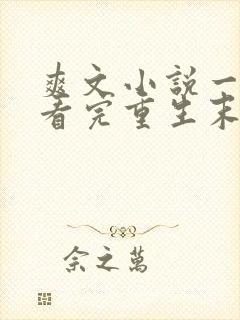 爽文小说一
看完重生末
余之万